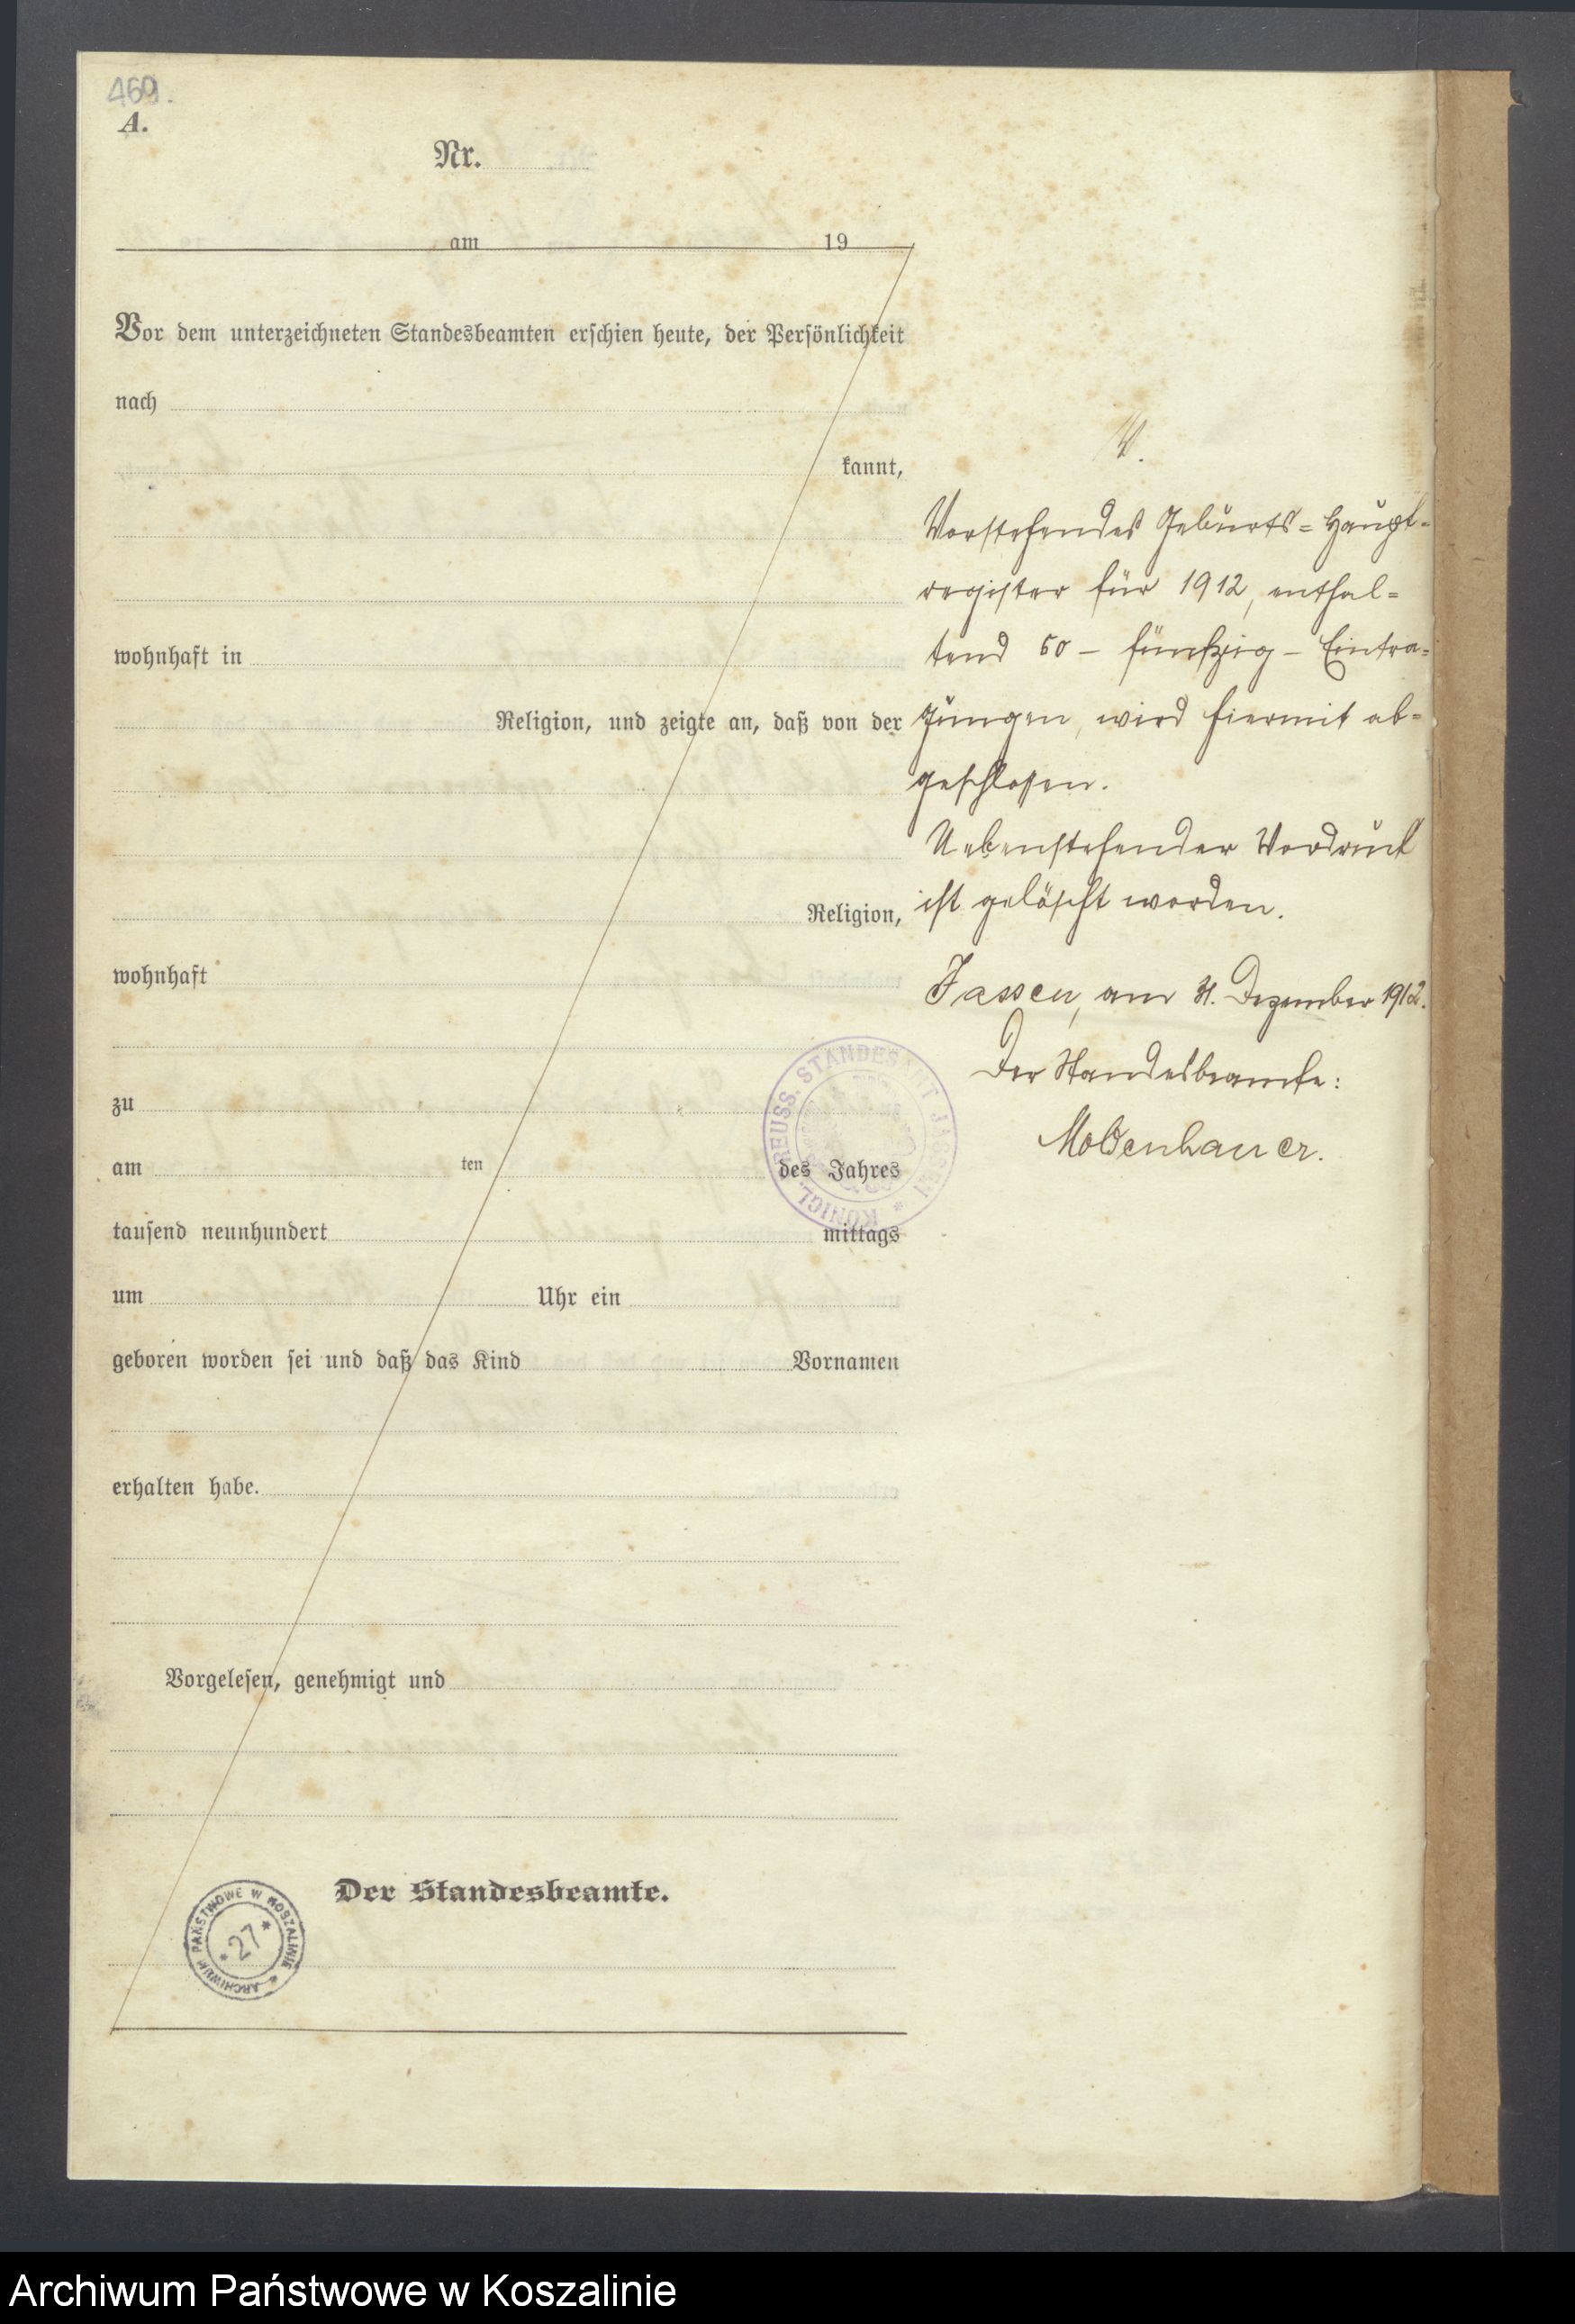 469.
A.
Nr.
am 19
Vor dem unterzeichneten Standesbeamten erschien heute, der Persönlichkeit
nach
kannt,
wohnhaft in
Religion, und zeigte an, daß von der
Religion,
wohnhaft
zu
am ten des Jahres
tausend neunhundert mittags
um Uhr ein
geboren worden sei und daß das Kind Vornamen
erhalten habe.
Vorgelesen, genehmigt und
Der Standesbeamte.
Vorstehendes Geburts=Haupt-
register für 1912, enthal=
tend 50 – fünfzig – Eintra=
gungen, wird hiermit ab=
geschlossen.
Nebenstehender Vordruck
ist gelöscht worden.
Jassen, am 31. Dezember 1912.
Der Standesbeamte:
Moldenhauer.
KÖNIGL. PREUSS. STANDESAMT JASSEN *
ARCHIWUM PAŃSTWOWE W KOSZALINIE *
* 27 *
Archiwum Państwowe w Koszalinie